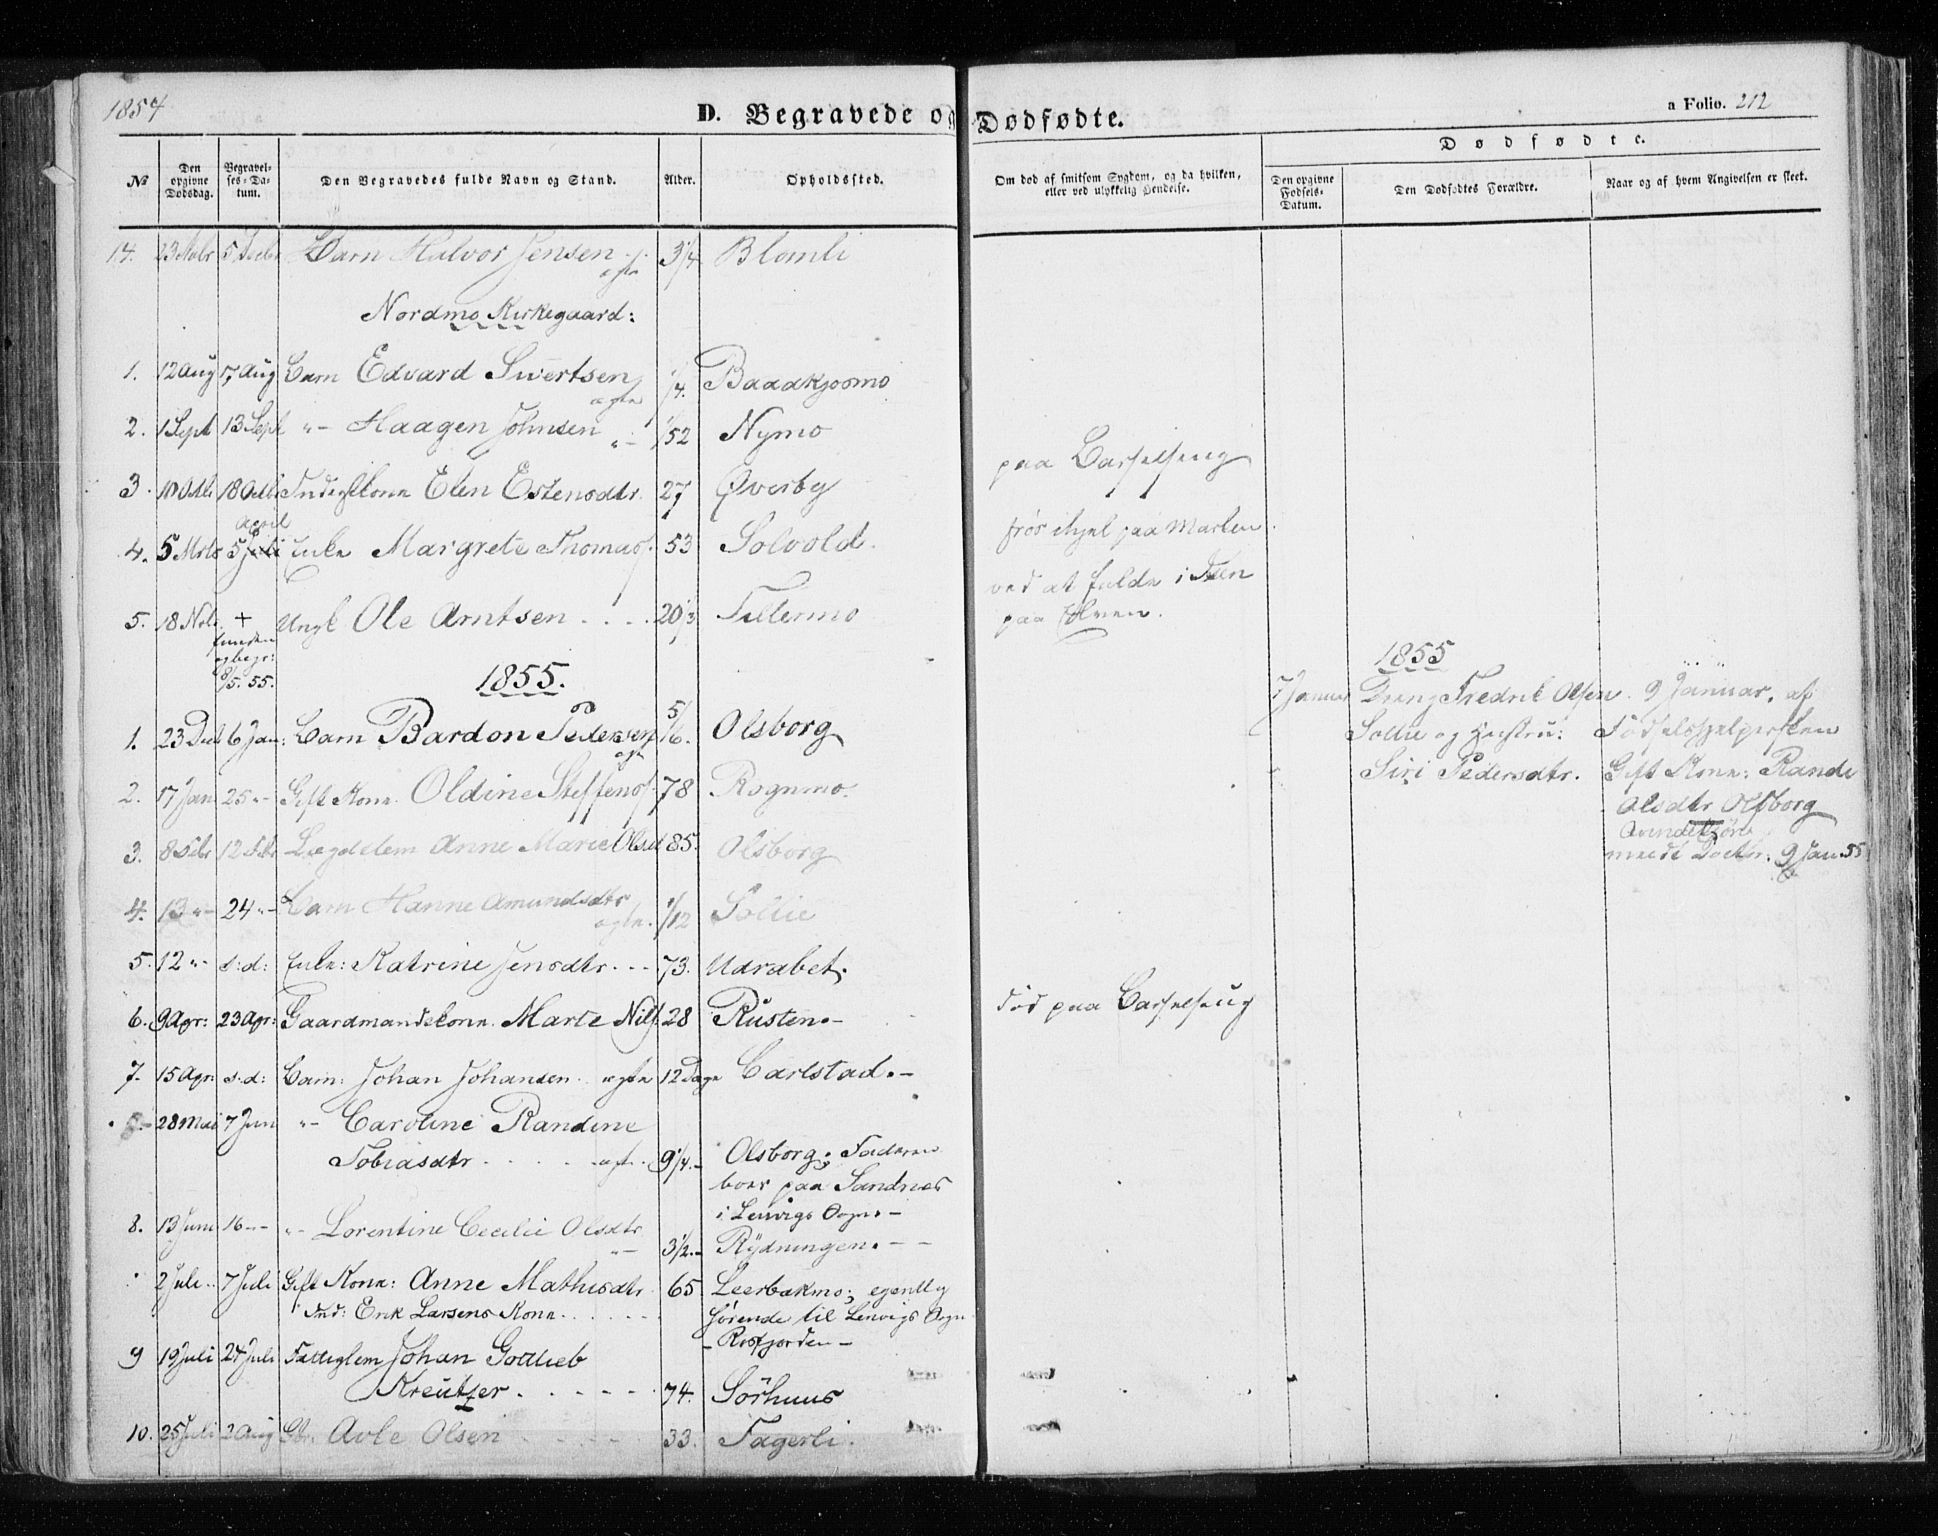 1854
D. Begravede og Dødfødte.
a Folio. 212
Dødfødte.
No
Den opgivne Dødsdag.
Begravelses-Datum.
Den Begravedes fulde Navn og Stand.
Alder.
Opholdssted.
Om død af smitsom Sygdom, og da hvilken, eller ved ulykkelig Hendelse.
Den opgivne Fødsels-Datum.
Den Dødfødtes Forældre.
Naar og af hvem Angivelsen er skeet.
14. 23 Nobr 5 Decbr Barn Halvor Jensen ægte 3/4 Blomli
Nordmo Kirkegaard:
1. 12 Aug 17 Aug Barn Edvard Sivertsen ægte 1/4. Baadkjosmo
2. 1 Sept 13 Sept "- Haagen Johnsen "- 1/52 Nymo
3. 18 Octbr Kone Elen Estensdtr. 27 Øverby
paa Barselseng
4. 5 5 April Enke Margrete Thomas 53 Solvold.
frøs ihjel paa Marken.
5. 18 Nobr + funden og begr: 8/5. 55. Ungk Ole Arntsen . . . . 20 1/3 Tellermo
ved at falde i Isen
paa Elven.
1855.
1. 23 Decb 6 Jan: Barn Bardon Pedersen ægte 5/6. Olsborg
2. 17 Jan 25 "- Gift Kone. Oldine Steffens 78 Rognmo.
3. 8 Febr 12 Febr Lægdslem Anne Marie Olsd 85. Olsborg
4. 13 "- 24 "- Barn Hanne Amundsdtr ægte. 1/12 Sollie
5. 12 "- s:d: Enke: Katrine Jensdtr. -- 73. Udrabet.
6. 9 Apr: 23 Apr: Gaardmandskone. Marte Nils 28 Rusten.-
død paa Barselseng
7. 15 Apr: s:d: Barn: Johan Johansen. ægte 12 Dage Carlstad.-
28 Mai 7 Juni "- Caroline Randine
Tobiasdtr . . . . . ægte. 9 1/4.- Olsborg; Faderen
boer paa Sandnes
i Lenvigs Sogn.-
8. 13 Juni 16 -- "- Lorentine Cecilie Olsdtr
"- 3 1/2.- Rydningen. - -
2 Juli.. 7 Juli Gift Kone: Anne Mathisdtr 65 Leerbakmo; egentlig
Ind: Erik Larsens Kone . . . . . .
hørende til Lenvigs Sogn
- Rosfjorden -
9 19 Juli 24 Juli Fattiglem Johan Gottlieb
Kreutzer . . . . . . 74. Sørhuus
10. 25 Juli 2 Aug Gbr. Avle Olsen . . . . 33. Fagerli.
1855
7 Januar Dreng Fredrik Olsen 9 Januar, af
Sollie og Hustru: Fødselshjelpersken
Siri Pedersdtr. Gift Kone: Rande
Olsdtr Olsborg
9 Jan 55